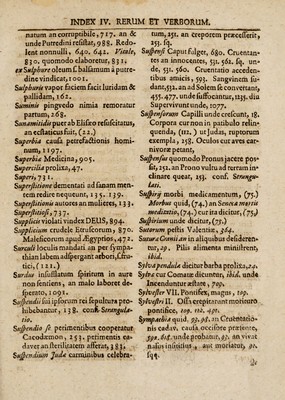 INDEX IV. RERUM ET VERBORUM.
natum an corruptibile, 717. an &
unde Putredini resistat, 988. Redo-
lent nonnulli, 640. 642. Vitale,
830. quomodo elaboretur, 831.
ex Sulphure oleum s. balsamum à putre-
dine vindicat, 1001.
Sulphuris vapor faciem facit luridam &
pallidam, 162.
Suminis pingvedo nimia remoratur
partum, 268.
Sunamitidis puer ab Elisæo resuscitatus,
an ecstaticus fuit, (22.)
Superbia causa putrefactionis homi-
num, 1197.
Superba Medicina, 905.
Supercilia prolixa, 47.
Superi, 731.
Superstitione dementati ad sanam men-
tem redire nequeunt, 135. 139.
Superstitionis autores an mulieres, 133.
Superstitiosi, 737.
Supplicie violati vindex DEUS, 894.
Supplicium crudele Etruscorum, 870.
Maleficorum apud Ægyptios, 472.
Surculi loculis mandati an per sympa-
thiam labem adspergant arbori,
tici, (121.)
Surdus insufflatum spiritum in aure
non sentiens, an malo labore de-
sperato, 1091.
Suspendii sui ipsorum rei sepultura pro-
hibebantur, 138.
Suspendio se perimentibus cooperatur
Cacodæmon, 253. perimentis ca-
daver an sterilitatem afferat, 381.
Suspendium Judæ carminibus celebra-
tum, 251. an creporem præcesserit,
253. sq.
Suspensi Caput fulget, 680. Cruentan-
tes an innocentes, 531. 562. sq. un-
de, 531. 560. Cruentatio acceden-
tibus amicis, 593. Sangvinem su-
dant, 532. an ad Solem se convertant,
435. 477. unde suffocentur, 1235. diu
Supervivunt unde, 1077.
Suspensorum Capilli unde crescunt, 18.
Corpora cur non in patibulo relin-
quenda, 112. ut Judas, ruptorum
exempla, 258. Oculus cur aves car-
nivoræ petant,
Suspensus quomodo Pronus jacere pos-
sit, 252. an Prono vultu ad terram in-
clinare queat, 253. conf. Strangu-
latus.
Suspirij morbi medicamentum, (75.)
Morbus quid, (74.) an Seneca mortis
meditatio, (74.) cur ita dicitur, (75.)
Suspirium unde dicitur, (75.)
Sutorum pestis Valentiæ, 364.
Suturæ Cranii an in aliquibus desideren-
tur, 49. Pilis alimenta ministrent
ibid.
Sylva pendula dicitur barba prolixa, 20.
Sylvæ cur Comatæ dicuntur, ibid. unde
Incenduntur æstate, 709.
Sylvester VII. Pontifex, magus, 109.
Sylvestri II. Ossa crepitarant morituro
pontifice, 109. 110. 491.
Sympathia quid, an Cruentatio-
nis cadav. causa, occisore præsente,
unde probatur, an vivat
nasus insititius, aut moriatur,
sqq.